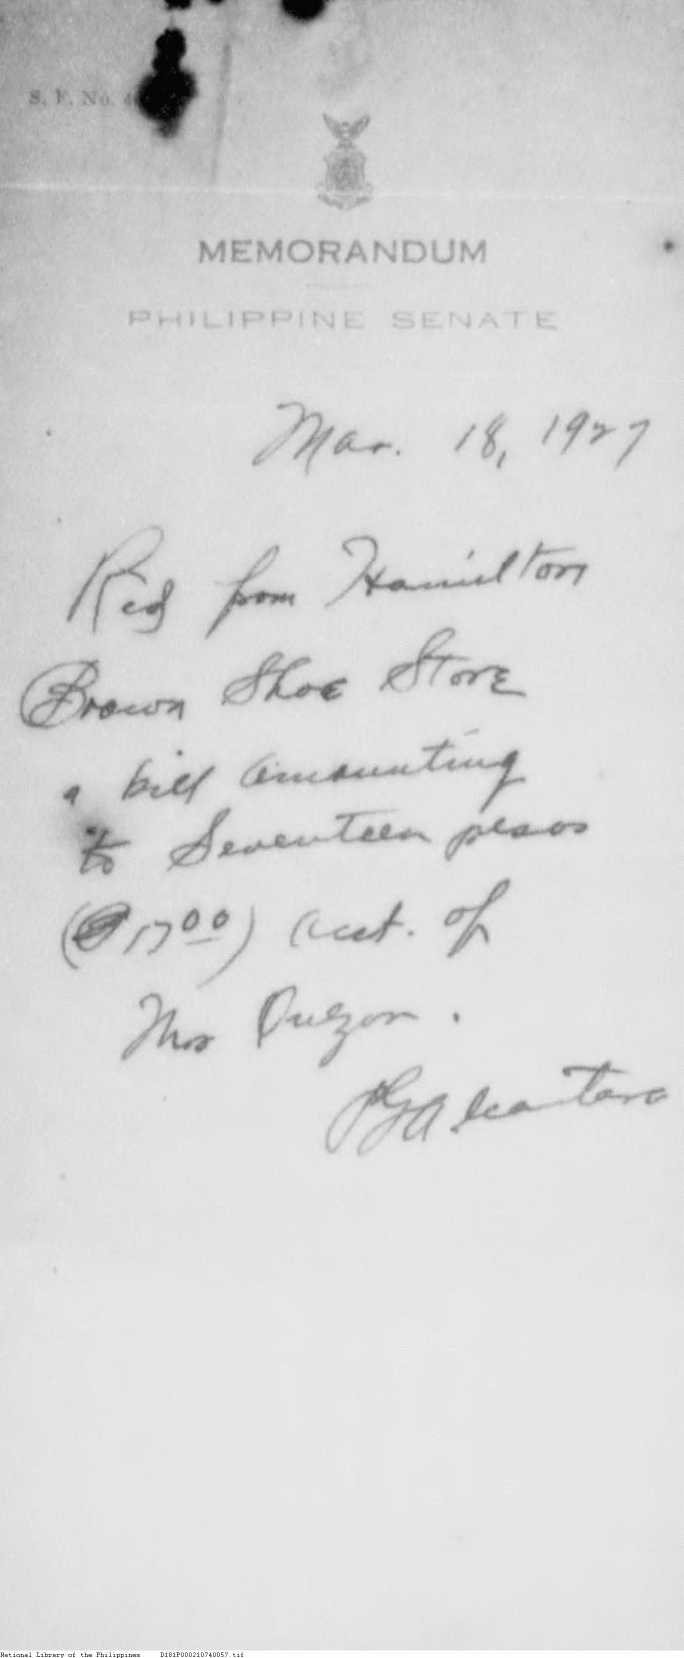 S. F. No. 4
MEMORANDUM
PHILIPPINE SENATE
Mar. 18, 1927
Rec'd from Hamilton
Brown Shoe Store
a bill amounting
to Seventeen pesos
(₱1700) acct. of
Mrs Quezon.
PGAlcantara
National Library of the Philippines D181P000210740057.tif